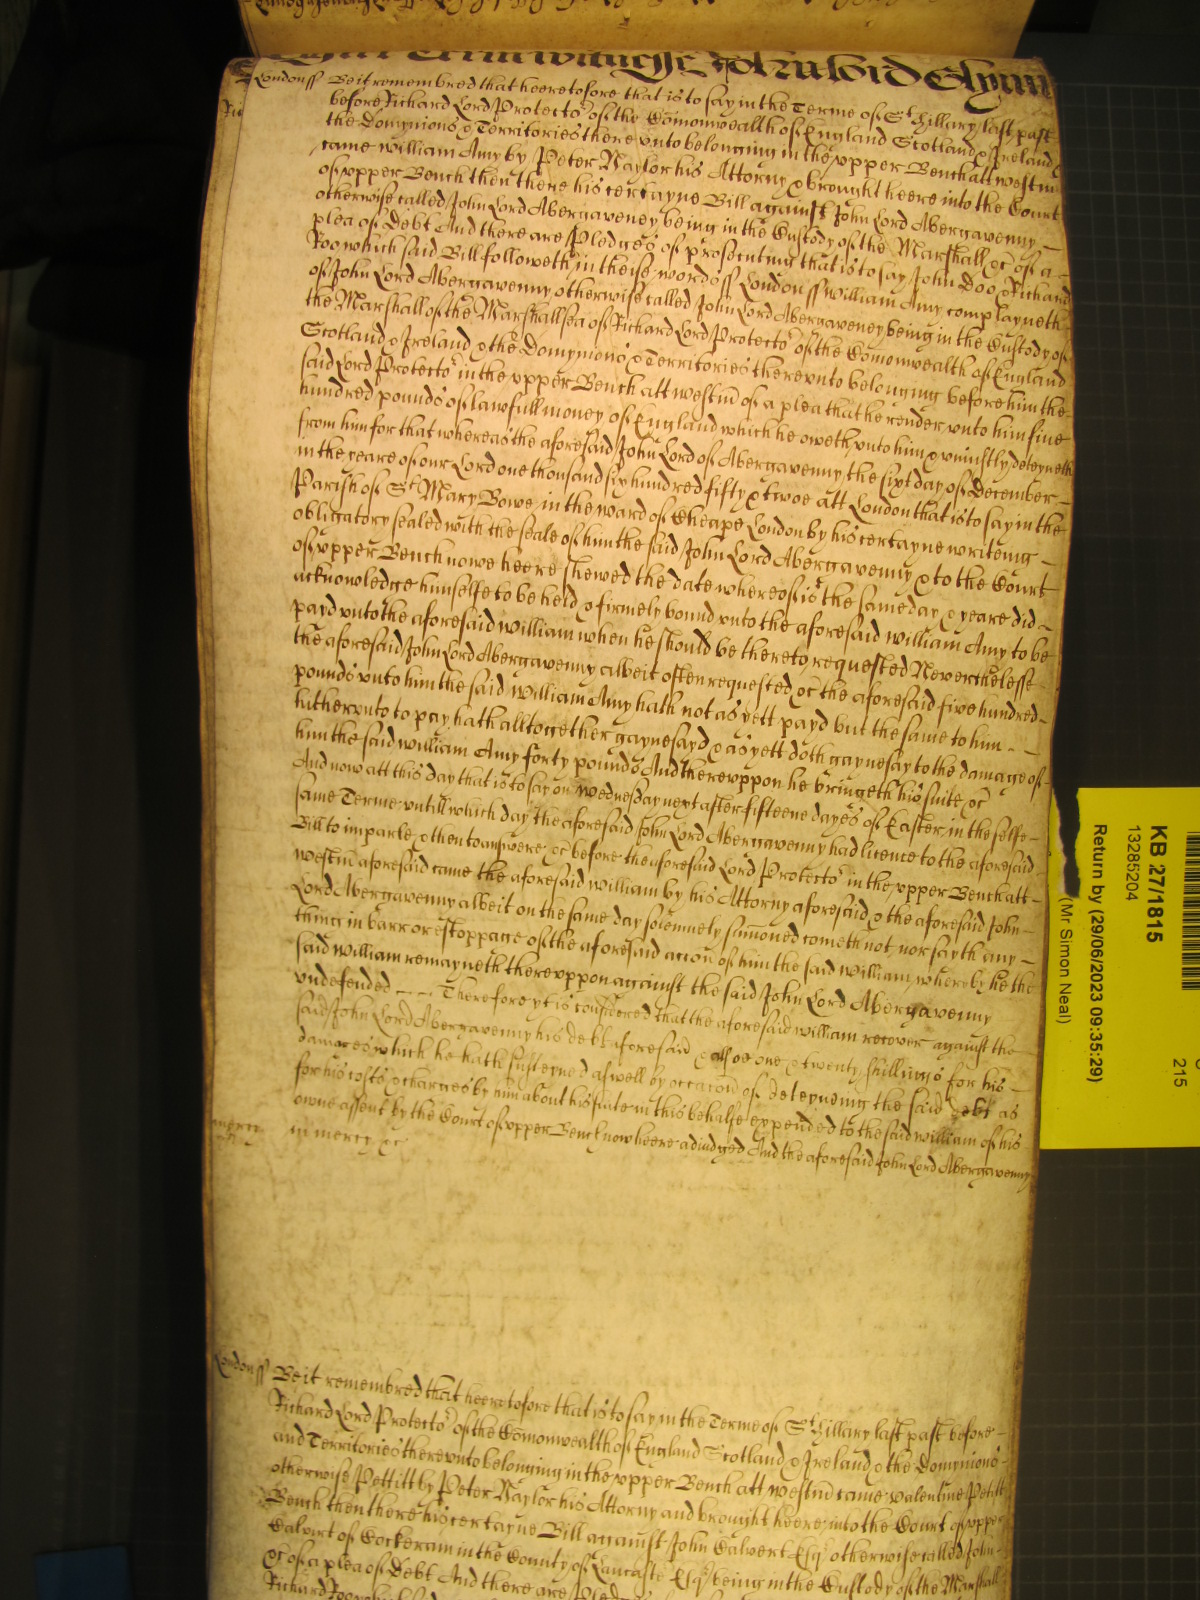 Terme witnesse John Lord Glynn
London ss Be it remembred that heeretofore that is to say in the Terme of St. Hillary last past
before Richard Lord Protector of the Comonwealth of England Scotland & Ireland &
the Dominyons & Territories there unto belonging in the upper Bench att Westm
came William Amy by Peter Naylor his Attorny & brought heere into the Court
of upper Bench then there his certayne Bill against John Lord Abergavenny
otherwise called John Lord Abergaveney being in the Custody of the Marshall &c of a
plea of Debt And there are Pledges of prosecuting that is to say John Doo & Richard
Roo which said Bill followeth in theise words ss London ss William Amy complayneth
of John Lord Abergavenny otherwise called John Lord Abergaveney being in the Custody of
the Marshall of the Marshallsea of Richard Lord Protector of the Comonwealth of England
Scotland & Ireland & the Dominyons & Territories thereunto belonging before him the
said Lord Protector in the upper Bench att Westm of a plea that he render unto him five
hundred pounds of lawfull money of England which he oweth unto him & uniustly deteyneth
from him for that whereas the aforesaid John Lord of Abergavenny the sixt day of December
in the yeare of our Lord one thousand six hundred fifty & twoe att London that is to say in the
Parish of St Mary Bowe in the ward of Cheape London by his certayne writeing
obligatory sealed with the seale of him the said John Lord Abergavenny & to the Court
of upper Bench nowe heere shewed the date whereof is the same day & yeare did
acknowledge himselfe to be held & firmely bound unto the aforesaid William Amy to be
payd unto the aforesaid William when he should be thereto requested Neverthelesse
the aforesaid John Lord Abergavenny albeit often requested &c the aforesaid five hundred
pounds unto him the said William Amy hath not as yett payd but the same to him
hitherunto to pay hath alltogether gaynesayd & as yett doth gaynesay to the damage of
him the said William Amy forty pounds And thereuppon he bringeth his suite &c
And now att this day that is to say on Wednesday next after fifteene dayes of Easter in the selfe
same Terme untill which day the aforesaid John Lord Abergavenny had licence to the aforesaid
Bill to imparle & then to answere &c before the aforesaid Lord Protector in the upper Bench att
Westm aforesaid came the aforesaid William by his Attorny aforesaid & the aforesaid John
Lord Abergavenny albeit on the same day solemnely sumoned cometh not nor sayth any
thing in barr or estoppage of the aforesaid acion of him the said William whereby he the
said William remayneth thereuppon against the said John Lord Abergavenny
undefended Therefore yt is considered that the aforesaid William recover against the
said John Lord Abergavenny his debt aforesaid & allsoe one & twenty shillings for his
damages which he hath susteyned aswell by occacion of deteyneing the said debt as
for his costs & charges by him about his suite in this behalfe expended to the said William of his
owne assent by the Court of upper Bench now heere adiudged And the aforesaid John Lord Abergavenny
mercy in mercy &c
London ss Be it remembred that heeretofore that is to say in the Terme of St. Hillary last past before
Richard Lord Protector of the Comonwealth of England Scotland & Ireland & the Dominyons
and Territories thereunto belonging in the upper Bench att Westm came Valentine Petitt
otherwise Pettitt by Peter Naylor his Attorny and brought heere into the Court of upper
Bench then there his certayne Bill against John Calvert Esqr otherwise called John
Calvert of Cockeram in the County of Lancaster Esqr being in the Custody of the Marshall
&c of a plea of Debt And there are
Richard Roo
KB 27/1815
13285204
Return by (29/06/2023 09:35:29)
(Mr Simon Neal)
215